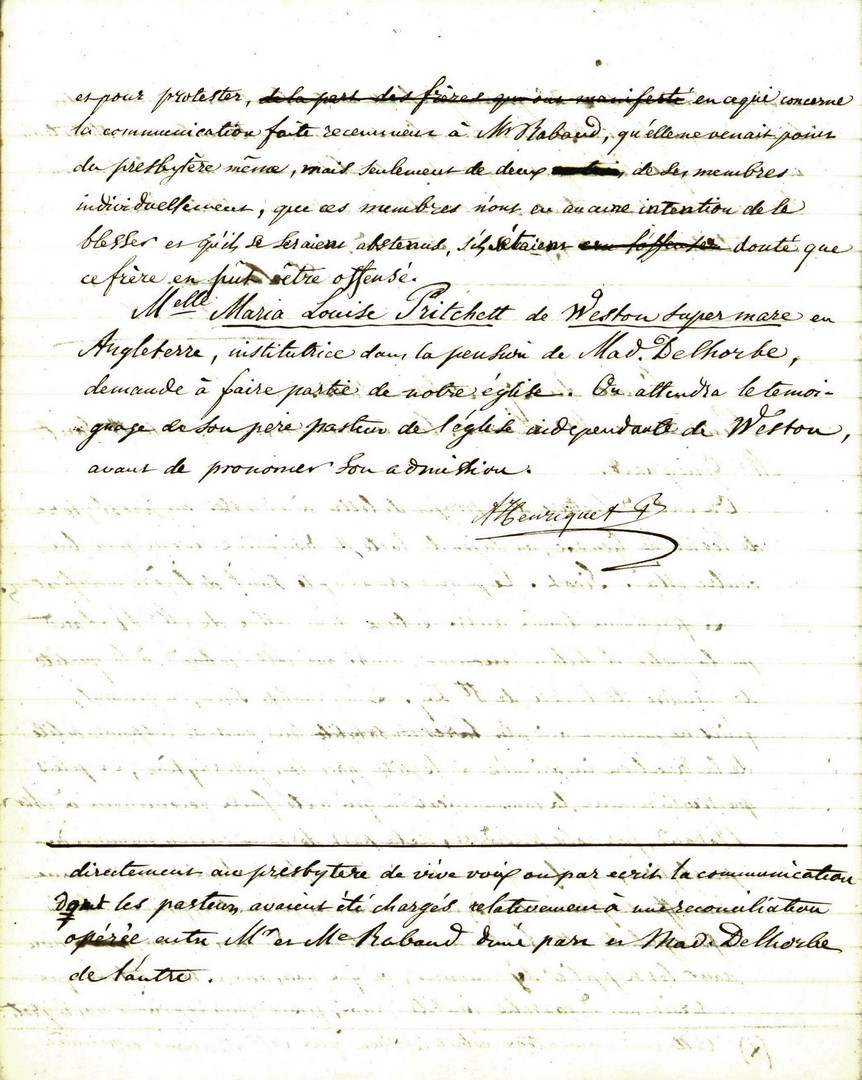 et pour protester, de la part des frères qui ont manifesté en ce qui concerne
la communication faite recemment à Mr Rabaud, qu'elle ne venait point
du presbytère même, mais seulement de deux de ses membres
individuellement, que ces membres n'ont eu aucune intention de le
blesser et qu'ils se seraient abstenus, s'ils s'étaient cru l'offenser douté que
ce frère en pût être offensé.
Melle Maria Louise Pritchett de Weston super mare en
Angleterre, institutrice dans la pension de Mad. Delhorbe,
demande à faire partie de notre église. On attendra le temoi-
gnage de son père pasteur de l'église independante de Weston,
avant de prononcer son admission.
A Henriquet
directement au presbytere de vive voix ou par ecrit la communication
dont les pasteurs avaient été chargés relativement à une reconciliation
opérée entre Mr et Me Rabaud d'une part et Mad. Delhorbe
de l'autre.